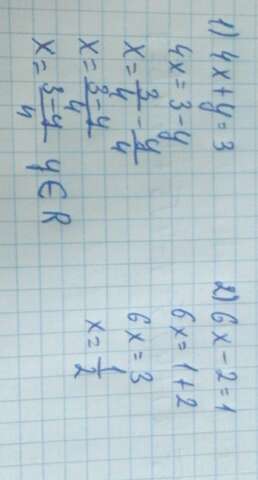 1) 4x + y = 3
4x = 3 - y
x = 3/4 - y/4
x = 3-y/4
x = 3-y/4 y ∈ R
2) 6x - 2 = 1
6x = 1 + 2
6x = 3
x = 1/2